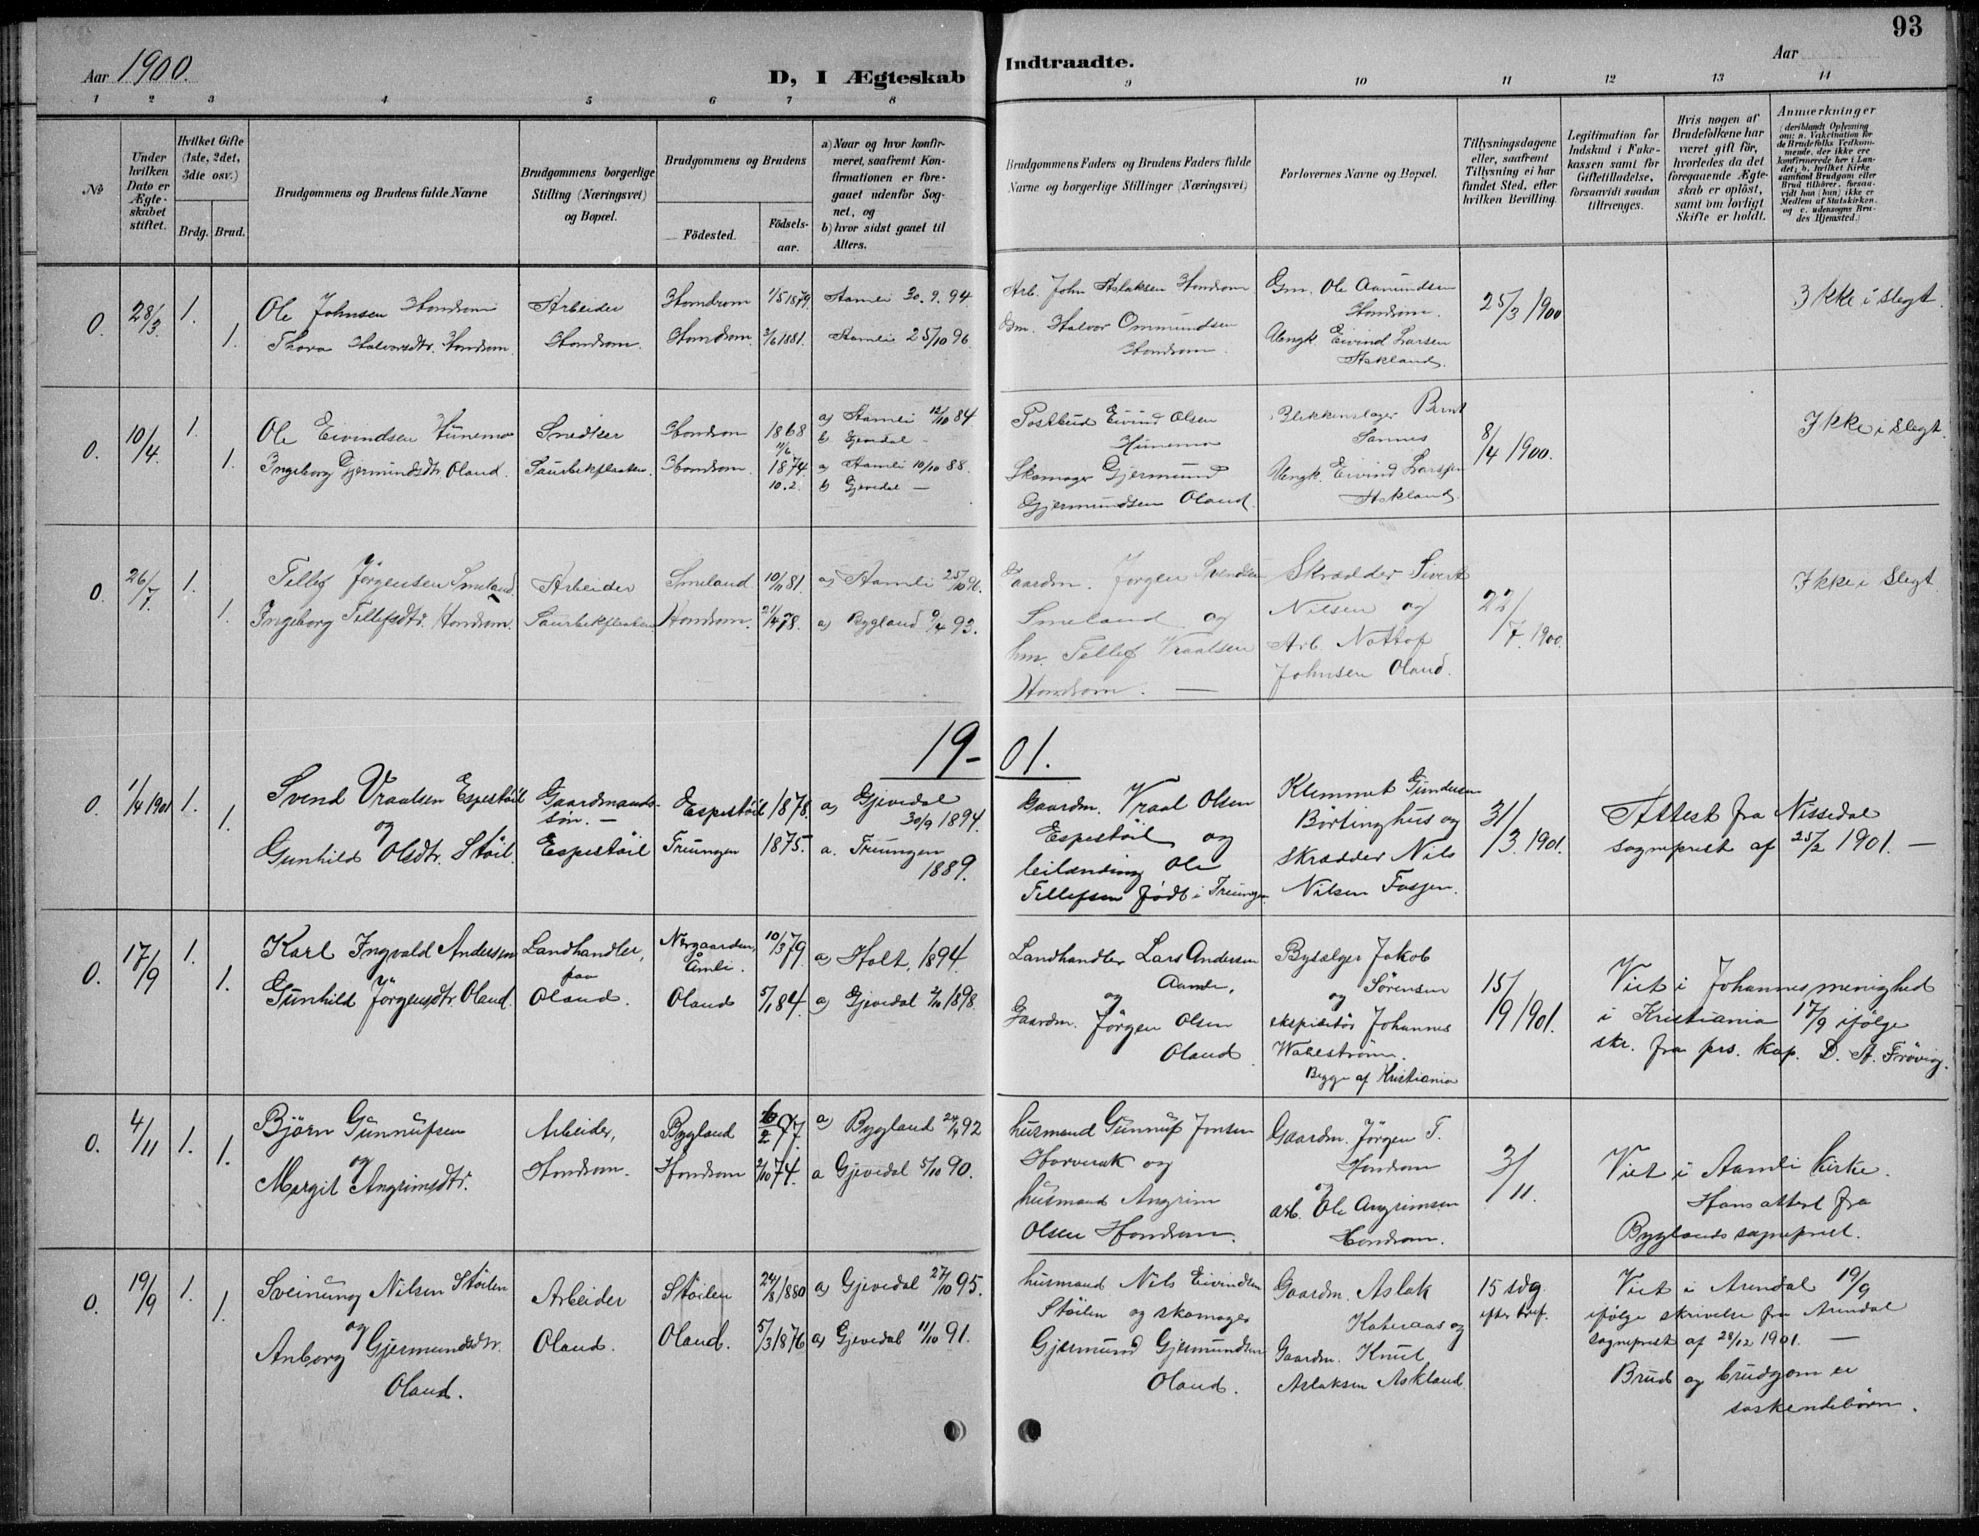 93
Aar 1900.
D, I Ægteskab Indtraadte.
Aar
1 2 3 4 5 6 7 8 9 10 11 12 13 14
№
Under hvilken Dato er Ægteskabet stiftet.
Hvilket Gifte (1ste, 2det, 3die osv.)
Brdg. Brud.
Brudgommens og Brudens fulde Navne
Brudgommens borgerlige Stilling (Næringsvei) og Bopæl.
Brudgommens og Brudens
Födested.
Födselsaar.
a) Naar og hvor konfirmeret, saafremt Konfirmationen er foregaaet udenfor Sognet, og
b) hvor sidst gaaet til Alters.
Brudgommens Faders og Brudens Faders fulde Navne og borgerlige Stillinger (Næringsvei)
Forlovernes Navne og Bopæl.
Tillysningsdagene eller, saafremt Tillysning ei har fundet Sted, efter hvilken Bevilling.
Legitimation for Indskud i Enkekassen samt for Giftetilladelse, forsaavidt saadan tiltrænges.
Hvis nogen af Brudefolkene har været gift för, hvorledes da det foregaaende Ægteskab er oplöst, samt om lovligt Skifte er holdt.
Anmærkninger
(deriblandt Oplysning om: a. Vakcination for de Brudefolks Vedkommende, der ikke ere konfirmerede her i Landet; b. hvilket Kirkesamfund Brudgom eller Brud tilhörer, forsaavidt han (hun) ikke er Medlem af Statskirken, og c. udensogns Brudes Hjemsted.)
0. 28/3 1. Ole Johnsen Hondrom Arbeider Hondrom 1/5 1879. Aamli 30.9.94. Arb. John Aslaksen Hondrom Gm. Ole Aamundsen 25/3 1900 Ikke i slegt.
1. Thora Halvorsdtr. Hondrom. Hondrom. Hondrom 3/6 1881. Aamli 25/10 96. Halvor Ommundsen Hondrom.
Hondrom. Ungk. Eivind Larsen
Askland.
0. 10/4. 1. Ole Eivindsen Hünemo Snedker Hondrom 1868 11/6 a) Aamli 12/10 84 Postbud Eivind Olsen Blikkenslager Bernt 8/4 1900. Ikke i slegt.
b) Gjevdal - Hünemo Sannes
1. Ingeborg Gjermundsdtr. Oland. Saurbekflaaten. Hondrom. 1874 10.2. a) Aamli 10/10 88. Skomager Gjermund Ungk. Eivind Larsen
b) Gjevedal — Gjermundsen Oland. Askland.
0. 26/7 1. Tellef Jörgensen Smeland. Arbeider Smeland 10/11 81. a) Aamli 25/10 96. Gaardm. Jörgen Svendsen Skrædder Sivert 22/7. 1900. Ikke i Slegt
1. Ingeborg Tellefsdtr. Hondrom. Saurbekflaaten Hondrom. 21/4 78. a) Bygland 9/4 93. Smeland og Nilsen og
hm. Tellef Vraalsen Arb. Nottof
Hondrom. — Johnsen Oland.
19-01.
0. 1/4 1901 1. Svend Vraalsen Espestöil Gaardmandssön. — Espestöil 1878. a) Gjevedal 30/9 1894. Gaardm. Vraal Olsen Klemmet Gundersen 31/3. 1901. Attest fra Nissedal
og Espestöil og Börtinghus og sogneprest af 25/2 1901. —
1. Gunhild Olsdtr. Stöil. Espestöil Treungen 1875. a. Treungen 1889. leilænding Ole skrædder Nils
Tellefsen födt i Treungen Nilsen Fosjen.
0. 17/9 1. Karl Ingvald Andersen Landhandler, Nergaarden, Åmli. 10/3 79. a) Holt, 1894. Landhandler Lars Andersen Bysælger Jakob 15/19 1901. Viet i Johannes menighed
paa Aamli, Sörensen i Kristiania 17/9 ifölge
1. Gunhild Jörgensdtr. Oland. Oland. Oland 5/1 84. a) Gjevedal 2/10 1898. og og skr. fra prs. kap. D. A. Frövig.
Gaardm. Jörgen Olsen ekspeditör Johannes
Oland Wahlström.
Begge af Kristiania
0. 4/11 1. Björn Gunnufsen Arbeider, Bygland 10/2 77. a) Bygland 24/4 92 husmand Gunnuf Jonsen Gaardm. Jörgen T. 3/11. Viet i Aamli kirke.
og Horverak og Hondrom Hans attest fra
1. Margit Angrimsdtr. Hondrom. Hondrom 2/10 74. a Gjevedal 5/10 90. husmand Angrim og Byglands sogneprest.
Olsen Hondrom. arb. Ole Angrimsen
Hondrom.
0. 19/9 1. Sveinung Nilsen Stöilen Arbeider Stöilen 24/8 1880 a) Gjevedal 27/10 95. husmand Nils Eivindsen Gaardm. Aslak 15 sdg. Viet i Arendal 19/9
og Stöilen og skomager Kateraas og efter tref. ifölge skrivelse fra Arendal
1. Anborg Gjermundsdtr. Oland. Oland. 5/3 1876 a) Gjevedal 11/10 91. Gjermund Gjermundsen Gaardm. Knut sogneprest af 28/12 1901. —
Oland. Oland. Aslaksen Askland Brud og brudgom er
söskendebörn.